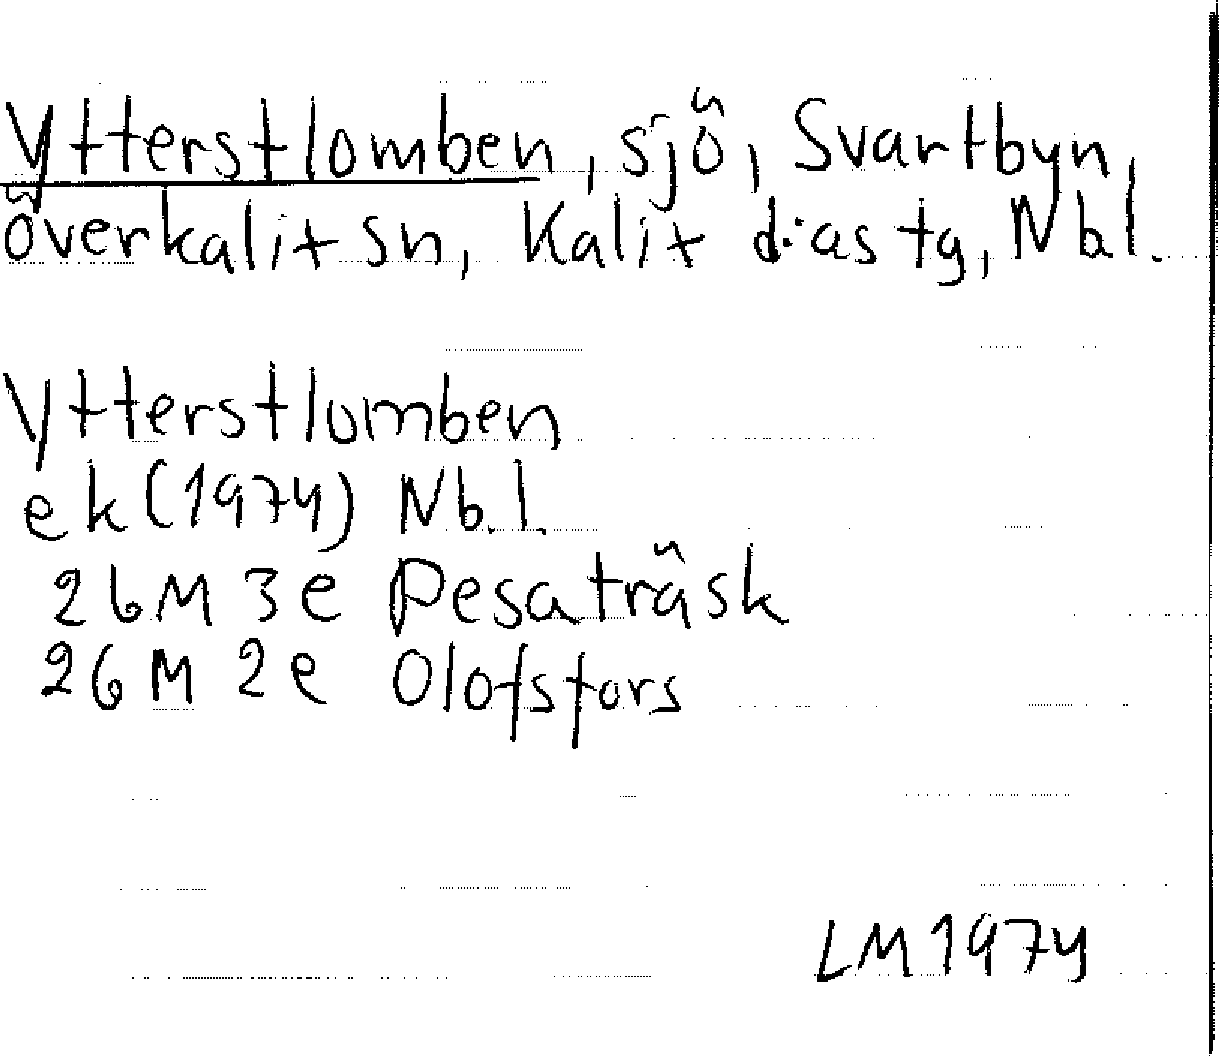 Ytterstlomben, sjö, Svartbyn,
överkalix sn, Kalix d:as tg, Nb l.
Ytterstlomben
ek (1974) Nb. l.
26M 3e Pesaträsk
26M 2e Olofsfors
LM1974